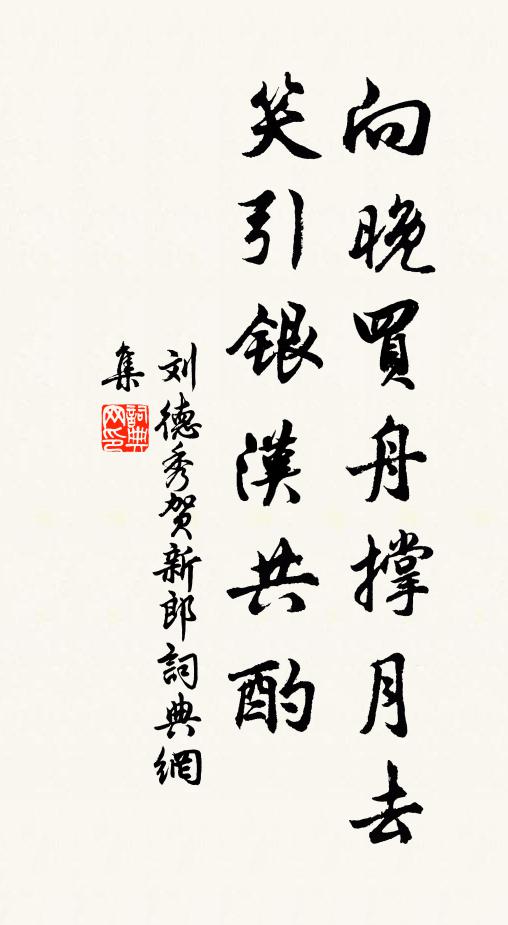 向晚買舟撐月去
笑引銀漢共酌
刘德秀贺新郎詞典網
集
詞典網印